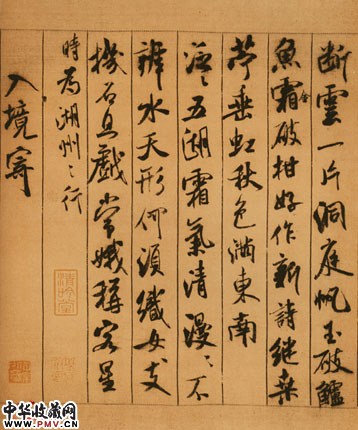 断雲一片洞庭帆玉破鱸
魚霜金破柑好作新詩継桑
苧垂虹秋色滿東南
泛〻五湖霜氣清漫〻不
辨水天形何須織女支
機石且戲嫦娥稱客星
時為湖州之行
入境寄
清吟堂
中华收藏网
WWW.PMV.CN